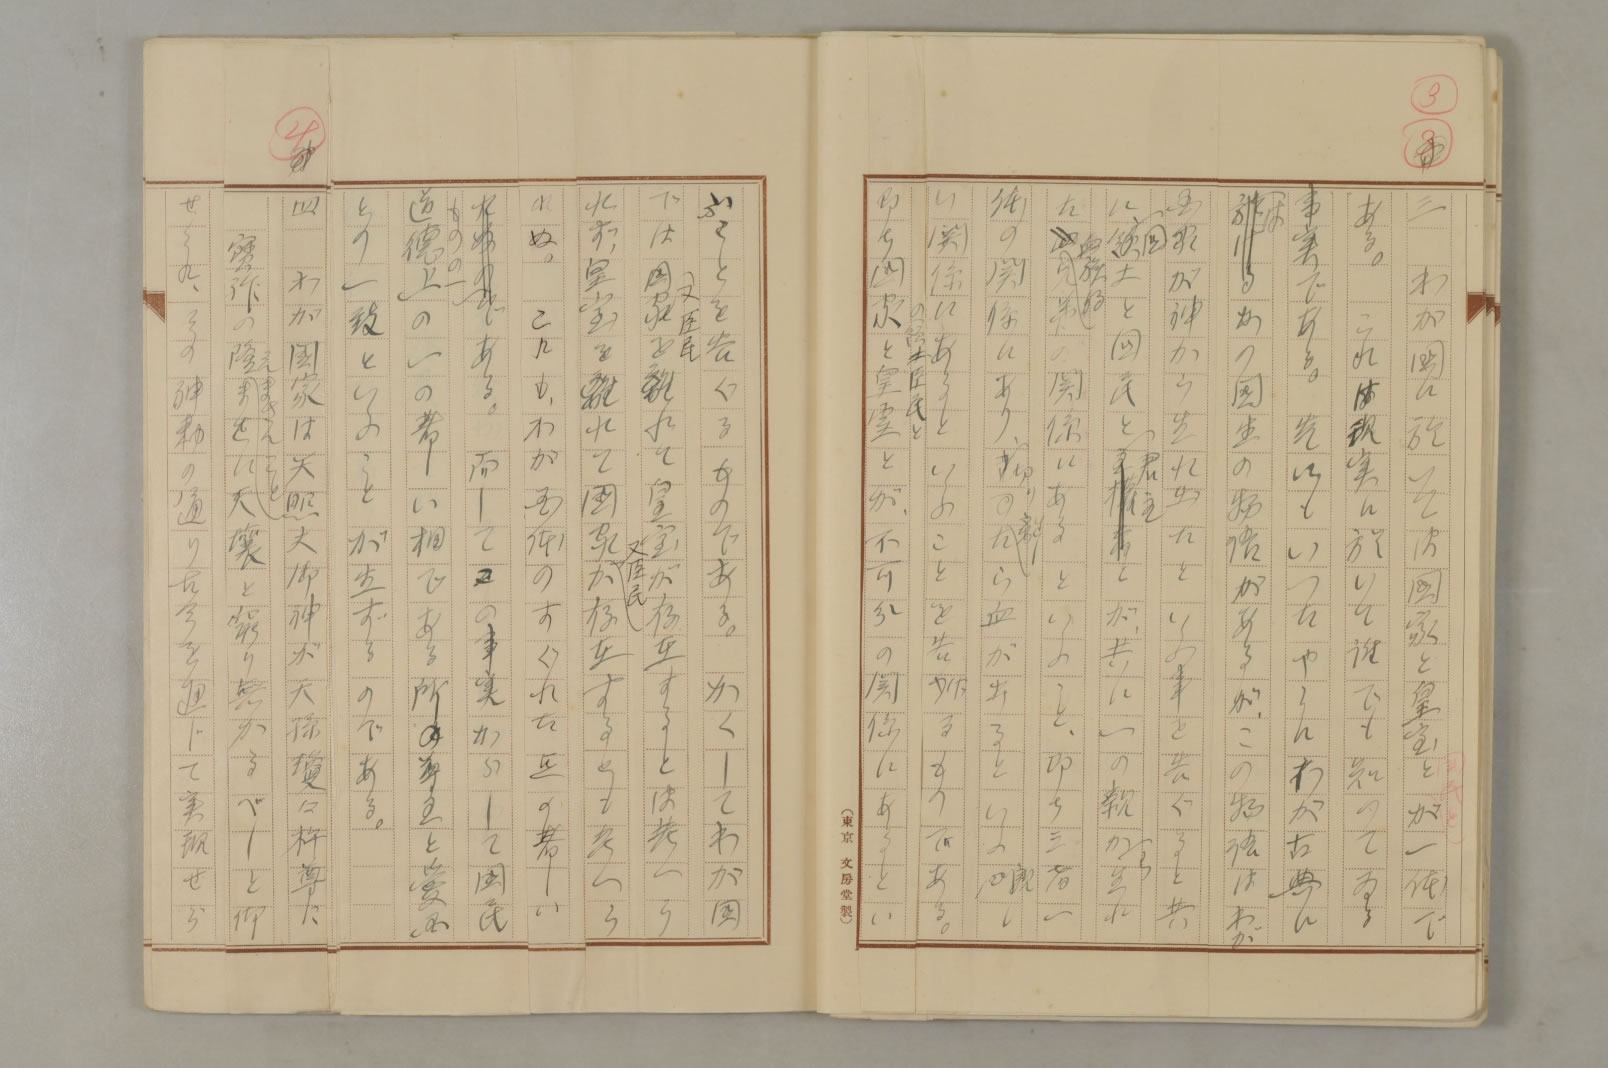 3
三 わが国に於いては国家と皇室とが一体で
ある。これは現実に於いて誰でも知つてゐる
事実である。先にもいつたやうにわが古典に
かの国生の物語があるが、この物語はわが
国土が神から生れ出たといふ事を告ぐると共
に国土と国民と君主とが、共に一の親から生れ
た血族的関係にあるといふこと、即ち三者一
体の関係にあり、切らば血が出るといふ親し
い関係にあるといふことを告げるものである。
即ち国家と皇室とが、不可分の関係にあるとい
の臣民と
ふことを告ぐるものである。かくしてわが国
では国家を離れて皇室が存在するとは考へら
又臣民
れず、皇室を離れて国家が存在するとも考へら
又臣民
れぬ。これも、わが国体のすぐれた一の著しい
ものの一である。而してこの事実からして国民
道徳上の一の著しい相である所の尊王と愛国
との一致といふことが生ずるのである。
4
四 わが国家は天照大御神が天孫瓊瓊杵尊に
宝祚の隆えまさんこと天壌と窮り無かるべしと仰
せられ、その神勅の通り古今を通じて実現せら
(東京 文房堂製)